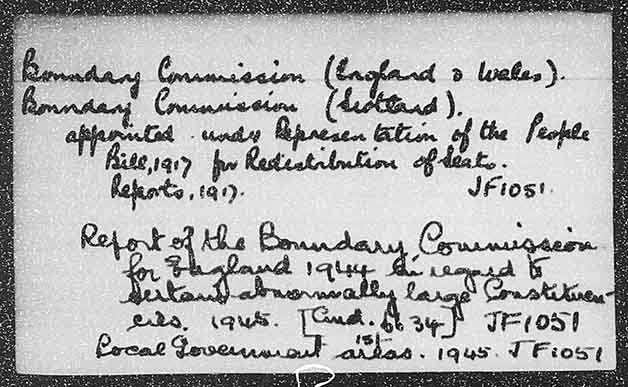 Boundary Commission (England & Wales).
Boundary Commission (Scotland).
appointed under Representation of the People
Bill, 1917 for Redistribution of Seats.
Reports, 1917. JF1051
Report of the Boundary Commission
for England 1944 in regard to
certain abnormally large Constituen-
cies. 1945. [Cmd. 6634] JF1051
Local Government areas. 1945. JF1051